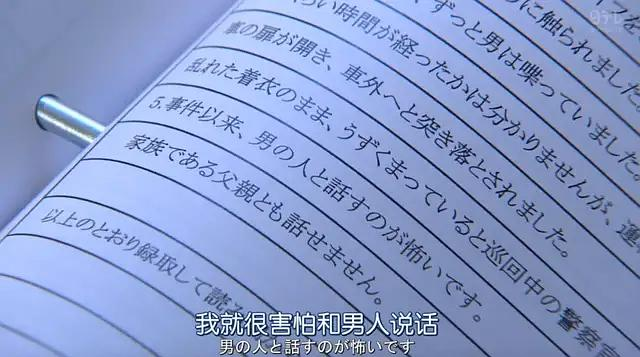 日テレ
に触られました
ずっと男は喋っていました。
らい時間が経ったかは分かりませんが、運
車の扉が開き、車外へと突き落とされました。
乱れた着衣のまま、うずくまっていると巡回中の警察官
5.事件以来、男の人と話すのが怖いです。
家族である父親とも話せません。
以上のとおり録取して読
我就很害怕和男人说话
男の人と話すのが怖いです